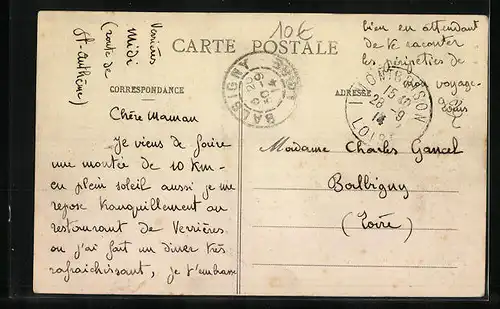 Verrières
Midi
(route de
St-Anthème)
10€
CARTE POSTALE
CORRESPONDANCE
ADRESSE
BALBIGNY
LOIRE
MONTBRISON
15 40
28 -9
LOIRE
Chère Maman
Je viens de faire
une montée de 10 Km-
en plein soleil aussi je me
repose tranquillement au
restaurant de Verrières
où j'ai fait un diner très
rafraichissant, je t'embrasse
bien en attendant
de te raconter
les péripéties de
mon voyage-
Louis
Madame Charles Gancel
Balbigny
(Loire)